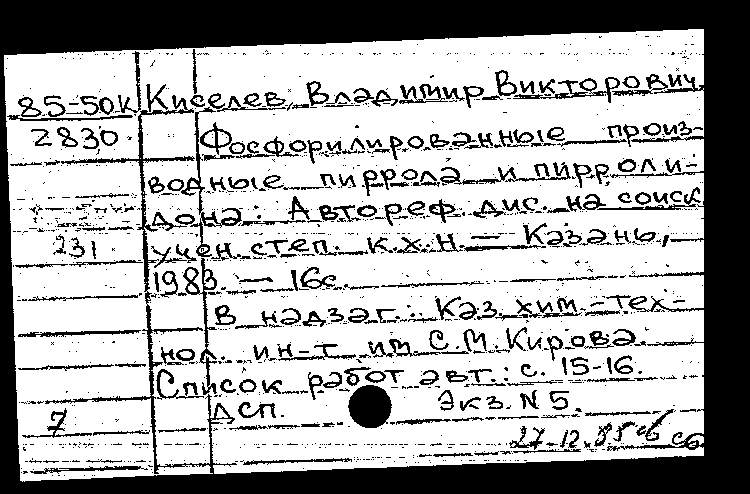 85-50к Киселев, Владимир Викторович.
2830. Фосфорилированные произ-
водные пиррола и пирроли-
дона: Автореф. дис. на соиск.
231 учен. степ. к.х.н. — Казань,
1983. — 16с.
В надзаг.: Каз. хим.-тех-
нол. ин-т им. С.М.Кирова.
Список работ авт.: с. 15-16.
7 ДСП. Экз. N 5.
27.12.85